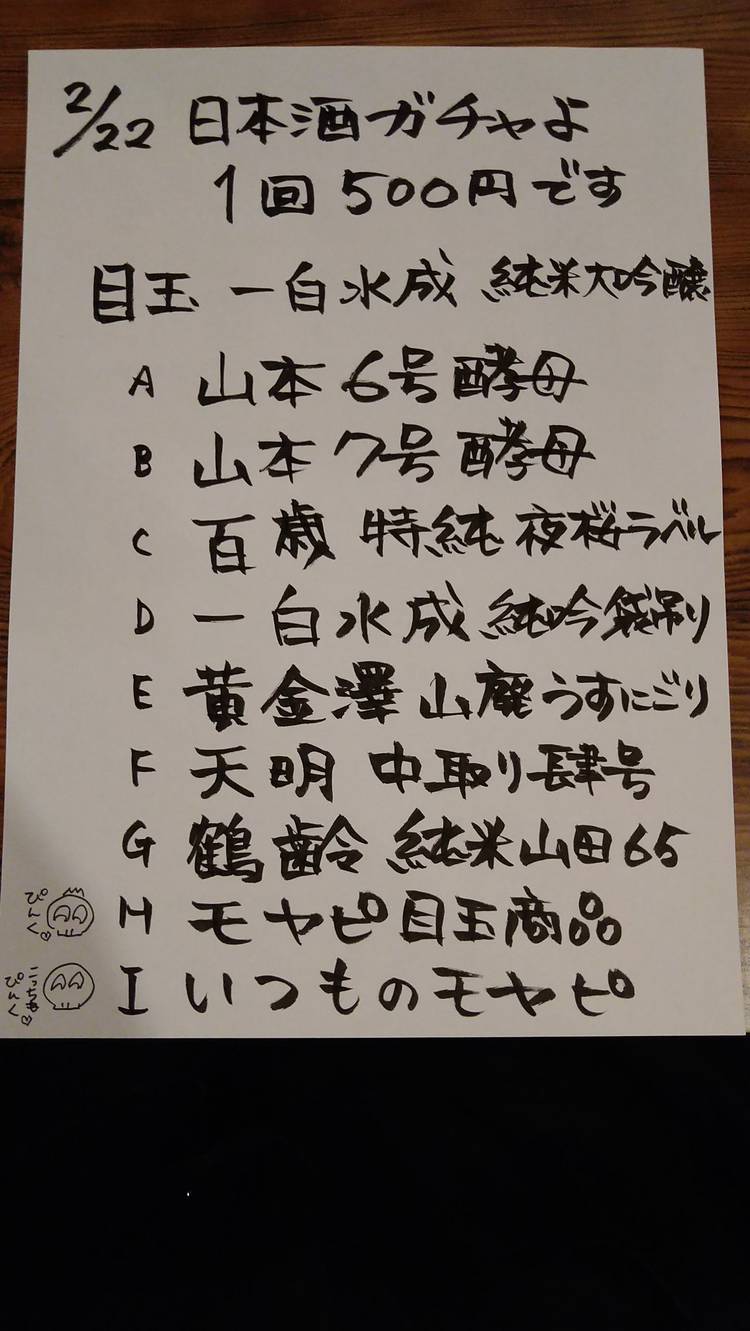 2/22 日本酒ガチャよ
1回 500円です
目玉 一白水成 純米大吟醸
A 山本 6号酵母
B 山本 7号酵母
C 百歳 特純 夜桜ラベル
D 一白水成 純吟 袋吊り
E 黄金澤 山廃 うすにごり
F 天明 中取り肆号
G 鶴齢 純米山田65
ぴんく♡
H モヤピ目玉商品
こっちもぴんく♡
I いつものモヤピ